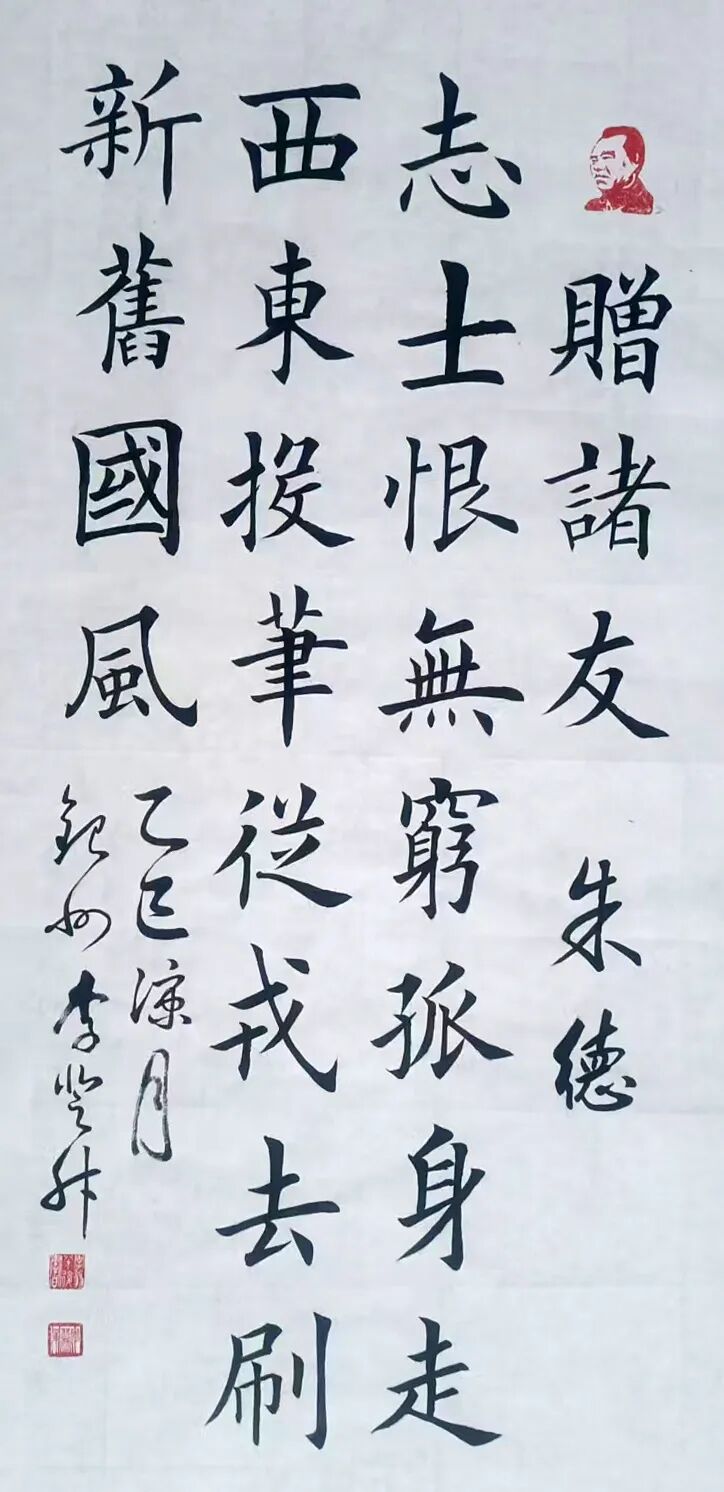 贈諸友 朱德
志士恨無窮孤身走
西東投筆従戎去刷
新舊國風
乙巳涼月
銀州李登